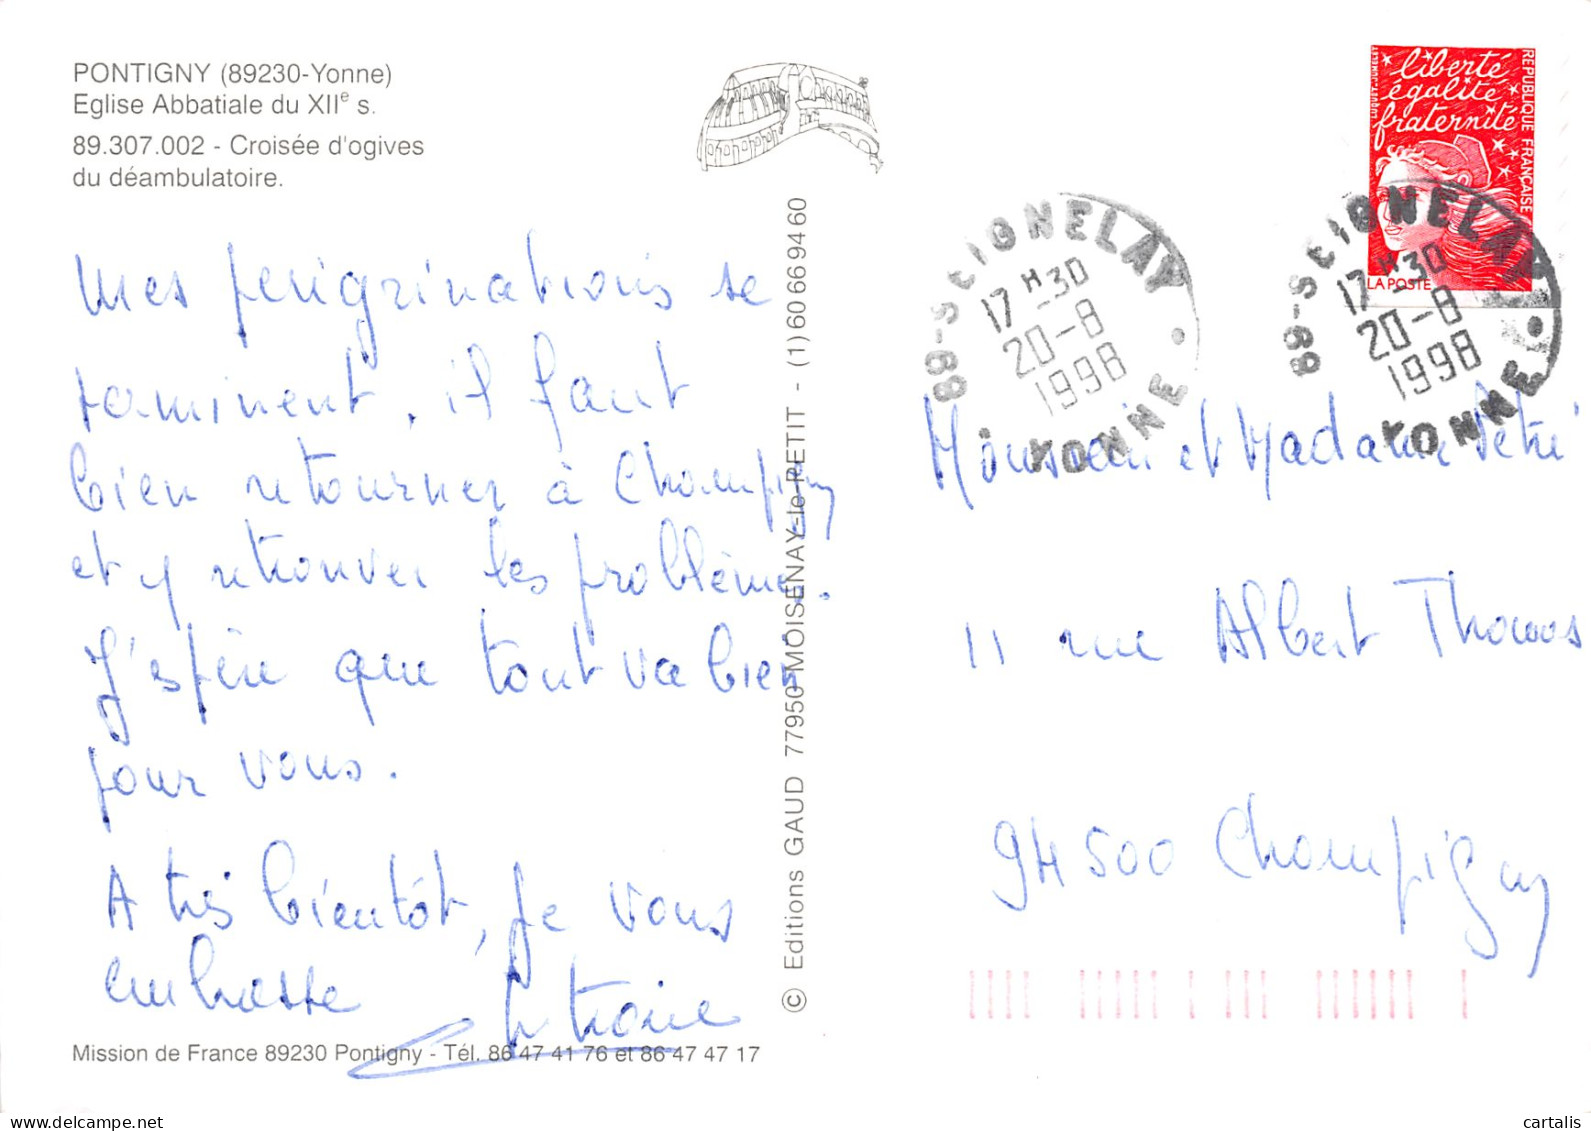 PONTIGNY (89230-Yonne)
Eglise Abbatiale du XIIe s.
89.307.002 - Croisée d'ogives
du déambulatoire.
Mes perigrinations se
terminent, il faut
bien retourner à Champigny
et y retrouver les problèmes.
J'espère que tout va bien
pour vous.
A très bientôt, je vous
embrasse
Mission de France 89230 Pontigny - Tél. 86 47 41 76 et 86 47 47 17
© Editions GAUD 77950-MOISENAY-le-PETIT - (1) 60 66 94 60
liberté
égalité
fraternité
RÉPUBLIQUE FRANÇAISE
LA POSTE
89-SEIGNELAY
17H30
20-8
1998
YONNE
89-SEIGNELAY
17H30
20-8
1998
YONNE
Monsieur et Madame
11 rue Albert Thomas
94500 Champigny
cartalis
www.delcampe.net